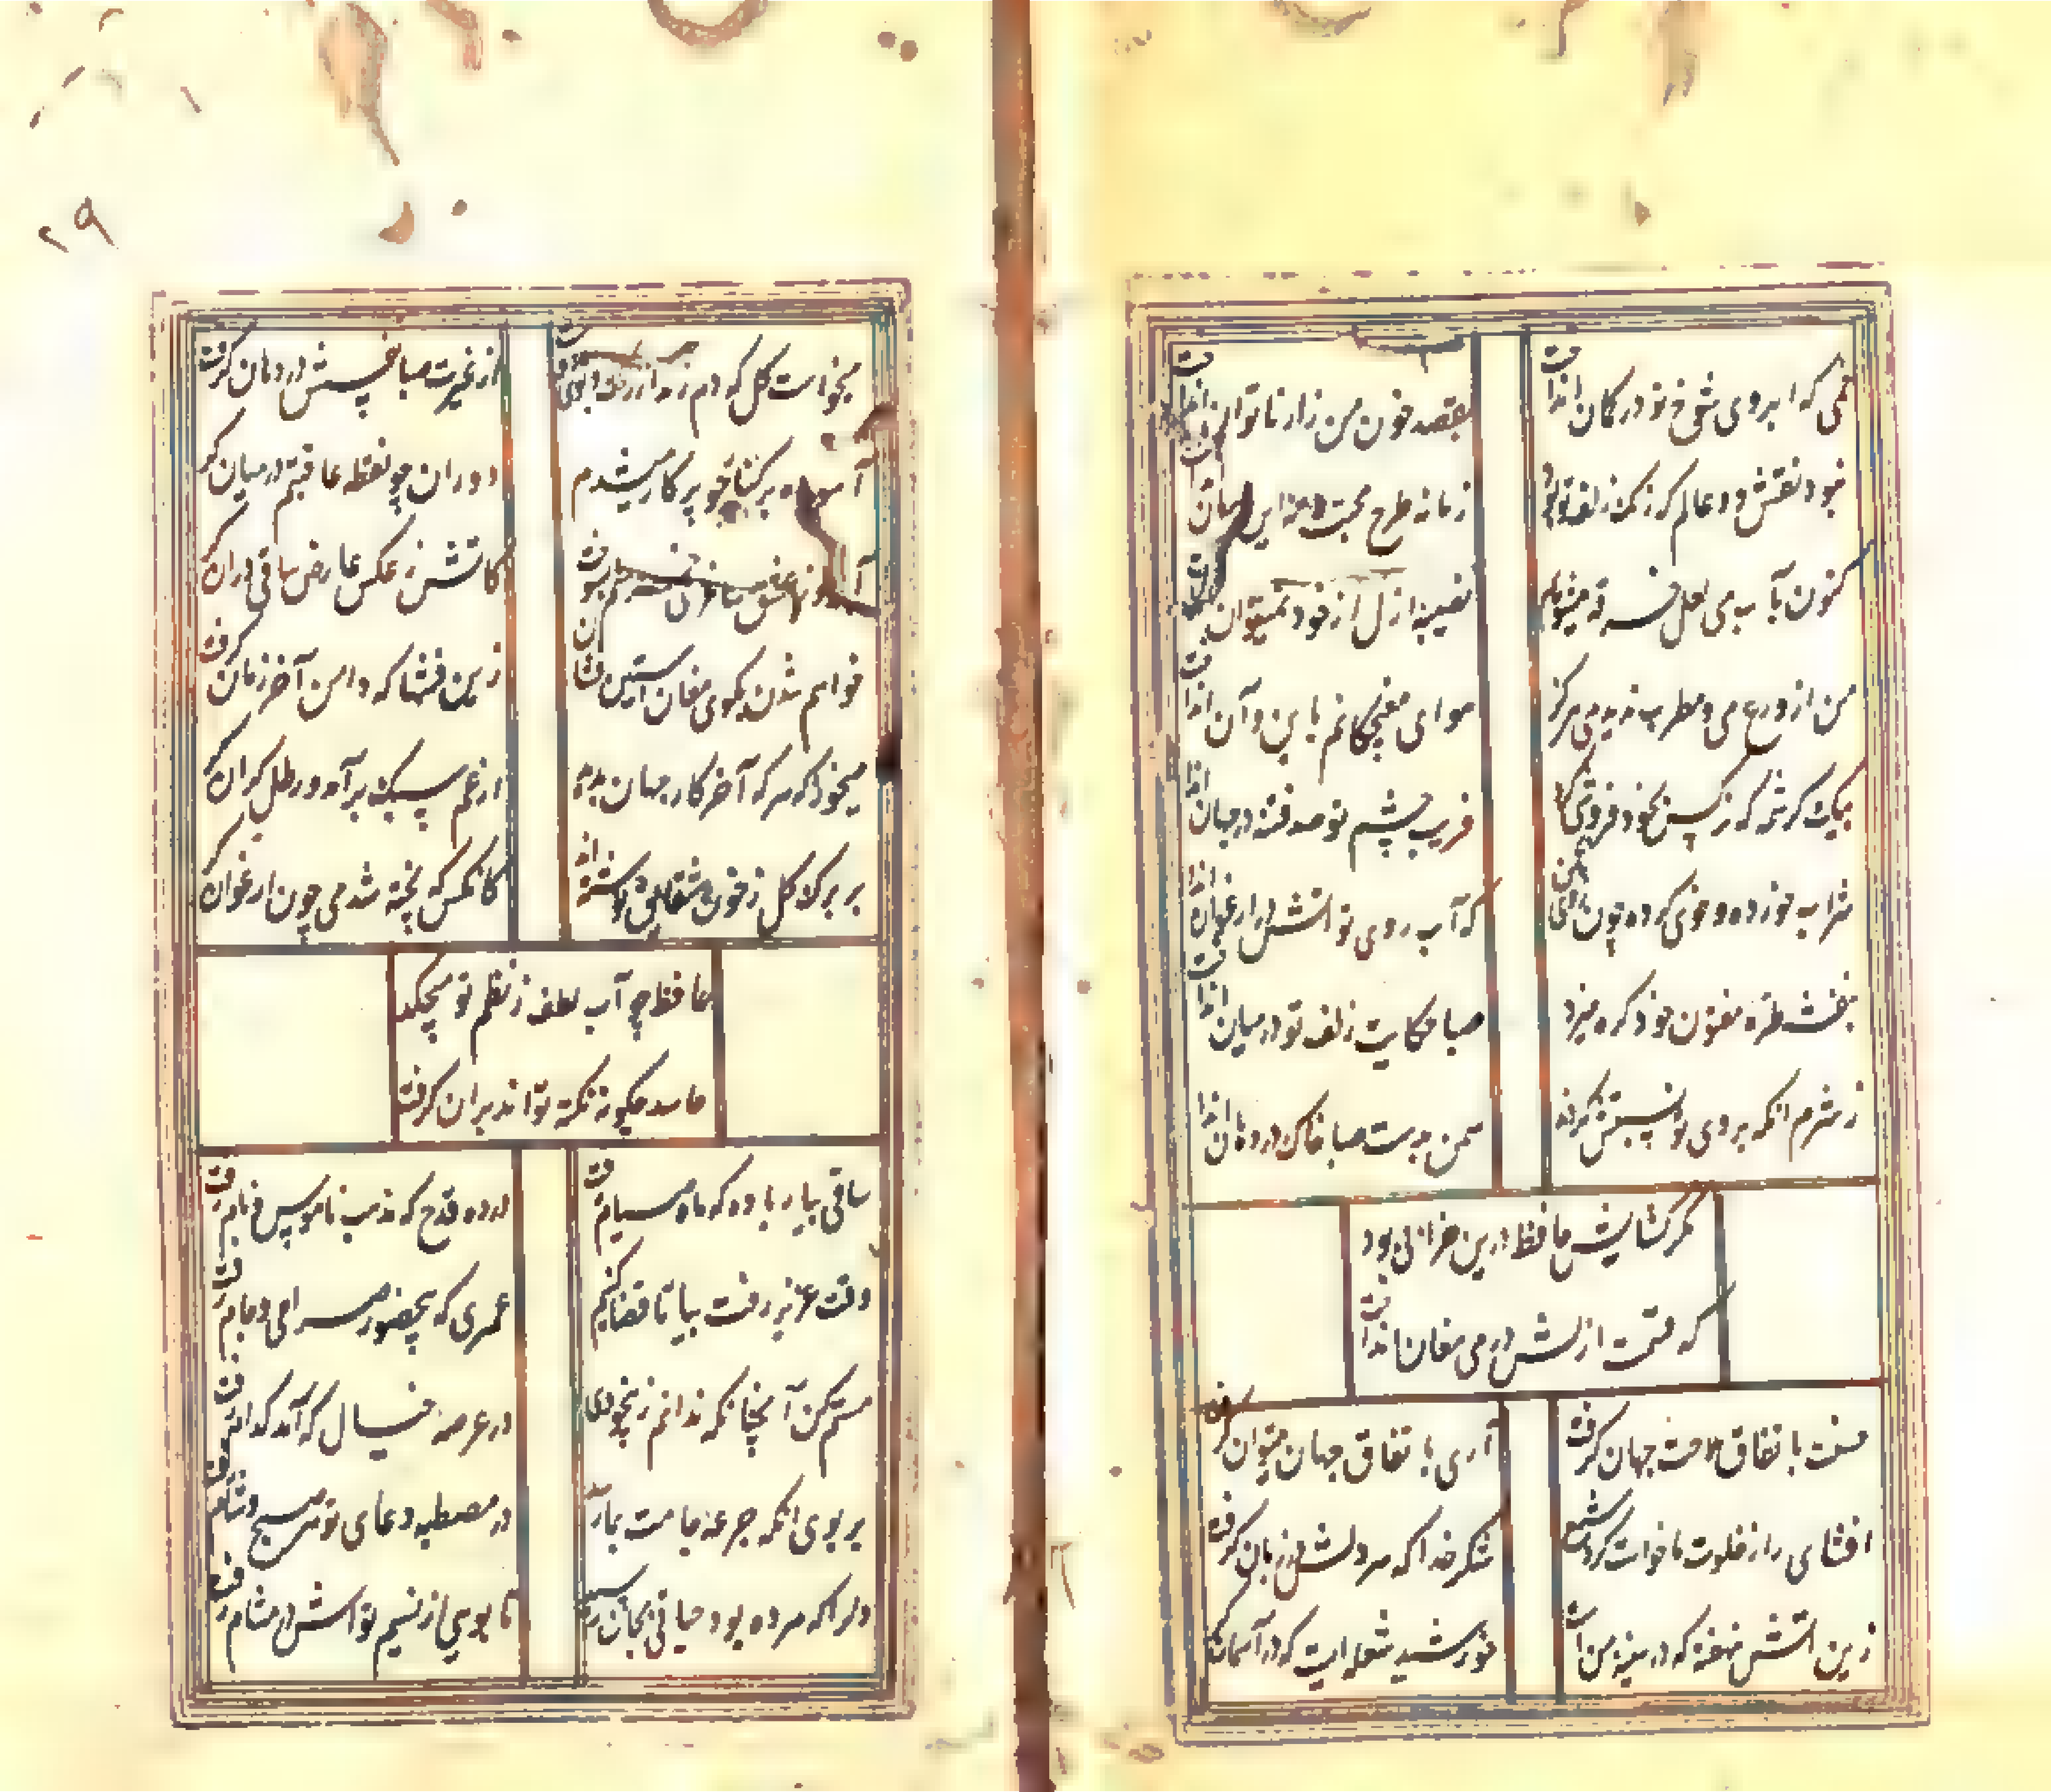 خمی که ابروی شوخ تو در کمان انداخت
بقصد خون من زار ناتوان انداخت
نبود نقش دو عالم که رنگ الفت بود
زمانه طرح محبت نه این زمان انداخت
کنون بآب می لعل خرقه میشویم
نصیبه ازل از خود نمیتوان انداخت
من از ورع می و مطرب ندیدمی هرگز
هوای مغبچگانم باین و آن انداخت
بیک کرشمه که نرگس بخود فروشی کرد
فریب چشم تو صد فتنه در جهان انداخت
شراب خورده و خوی کرده چون شدی بچمن
که آب روی تو آتش در ارغوان انداخت
بنفشه طره مفتون خود گره میزد
صبا حکایت زلف تو در میان انداخت
ز شرم آنکه بروی تو نسبتش کردند
سمن بدست صبا خاک در دهان انداخت
مگر گشایش حافظ درین خرابی بود
که قسمت ازلش در می مغان انداخت
حسنت باتفاق ملاحت جهان گرفت
آری باتفاق جهان میتوان گرفت
افشای راز خلوت ما خواست کرد شمع
شکر خدا که سر دلش در زبان گرفت
زین آتش نهفته که در سینه من است
خورشید شعله ایست که در آسمان گرفت
۲۹
میخواست گل که دم زند از رنگ و بوی دوست
از غیرت صبا نفسش در دهان گرفت
آسوده بر کنار چو پرگار میشدم
دوران چو نقطه عاقبتم در میان گرفت
آن روز عشق ساغر می خرمنم بسوخت
کاتش ز عکس عارض ساقی در آن گرفت
خواهم شدن بکوی مغان آستین فشان
زین فتنها که دامن آخر زمان گرفت
می خور که هر که آخر کار جهان بدید
از غم سبک برآمد و رطل گران گرفت
بر برگ گل ز خون شقایق نوشته اند
کانکس که پخته شد می چون ارغوان گرفت
حافظ چو آب لطف ز نظم تو میچکد
حاسد چگونه نکته تواند بر آن گرفت
ساقی بیار باده که ماه صیام رفت
در ده قدح که مذهب ناموس و نام رفت
وقت عزیز رفت بیا تا قضا کنیم
عمری که بیحضور صراحی و جام رفت
مستم کن آنچنانکه ندانم ز بیخودی
در عرصه خیال که آمد کدام رفت
بر بوی آنکه جرعه جامت بما رسد
در مصطبه دعای تو هر صبح و شام رفت
دل را که مرده بود حیاتی بجان رسید
تا بویی از نسیم تواش در مشام رفت